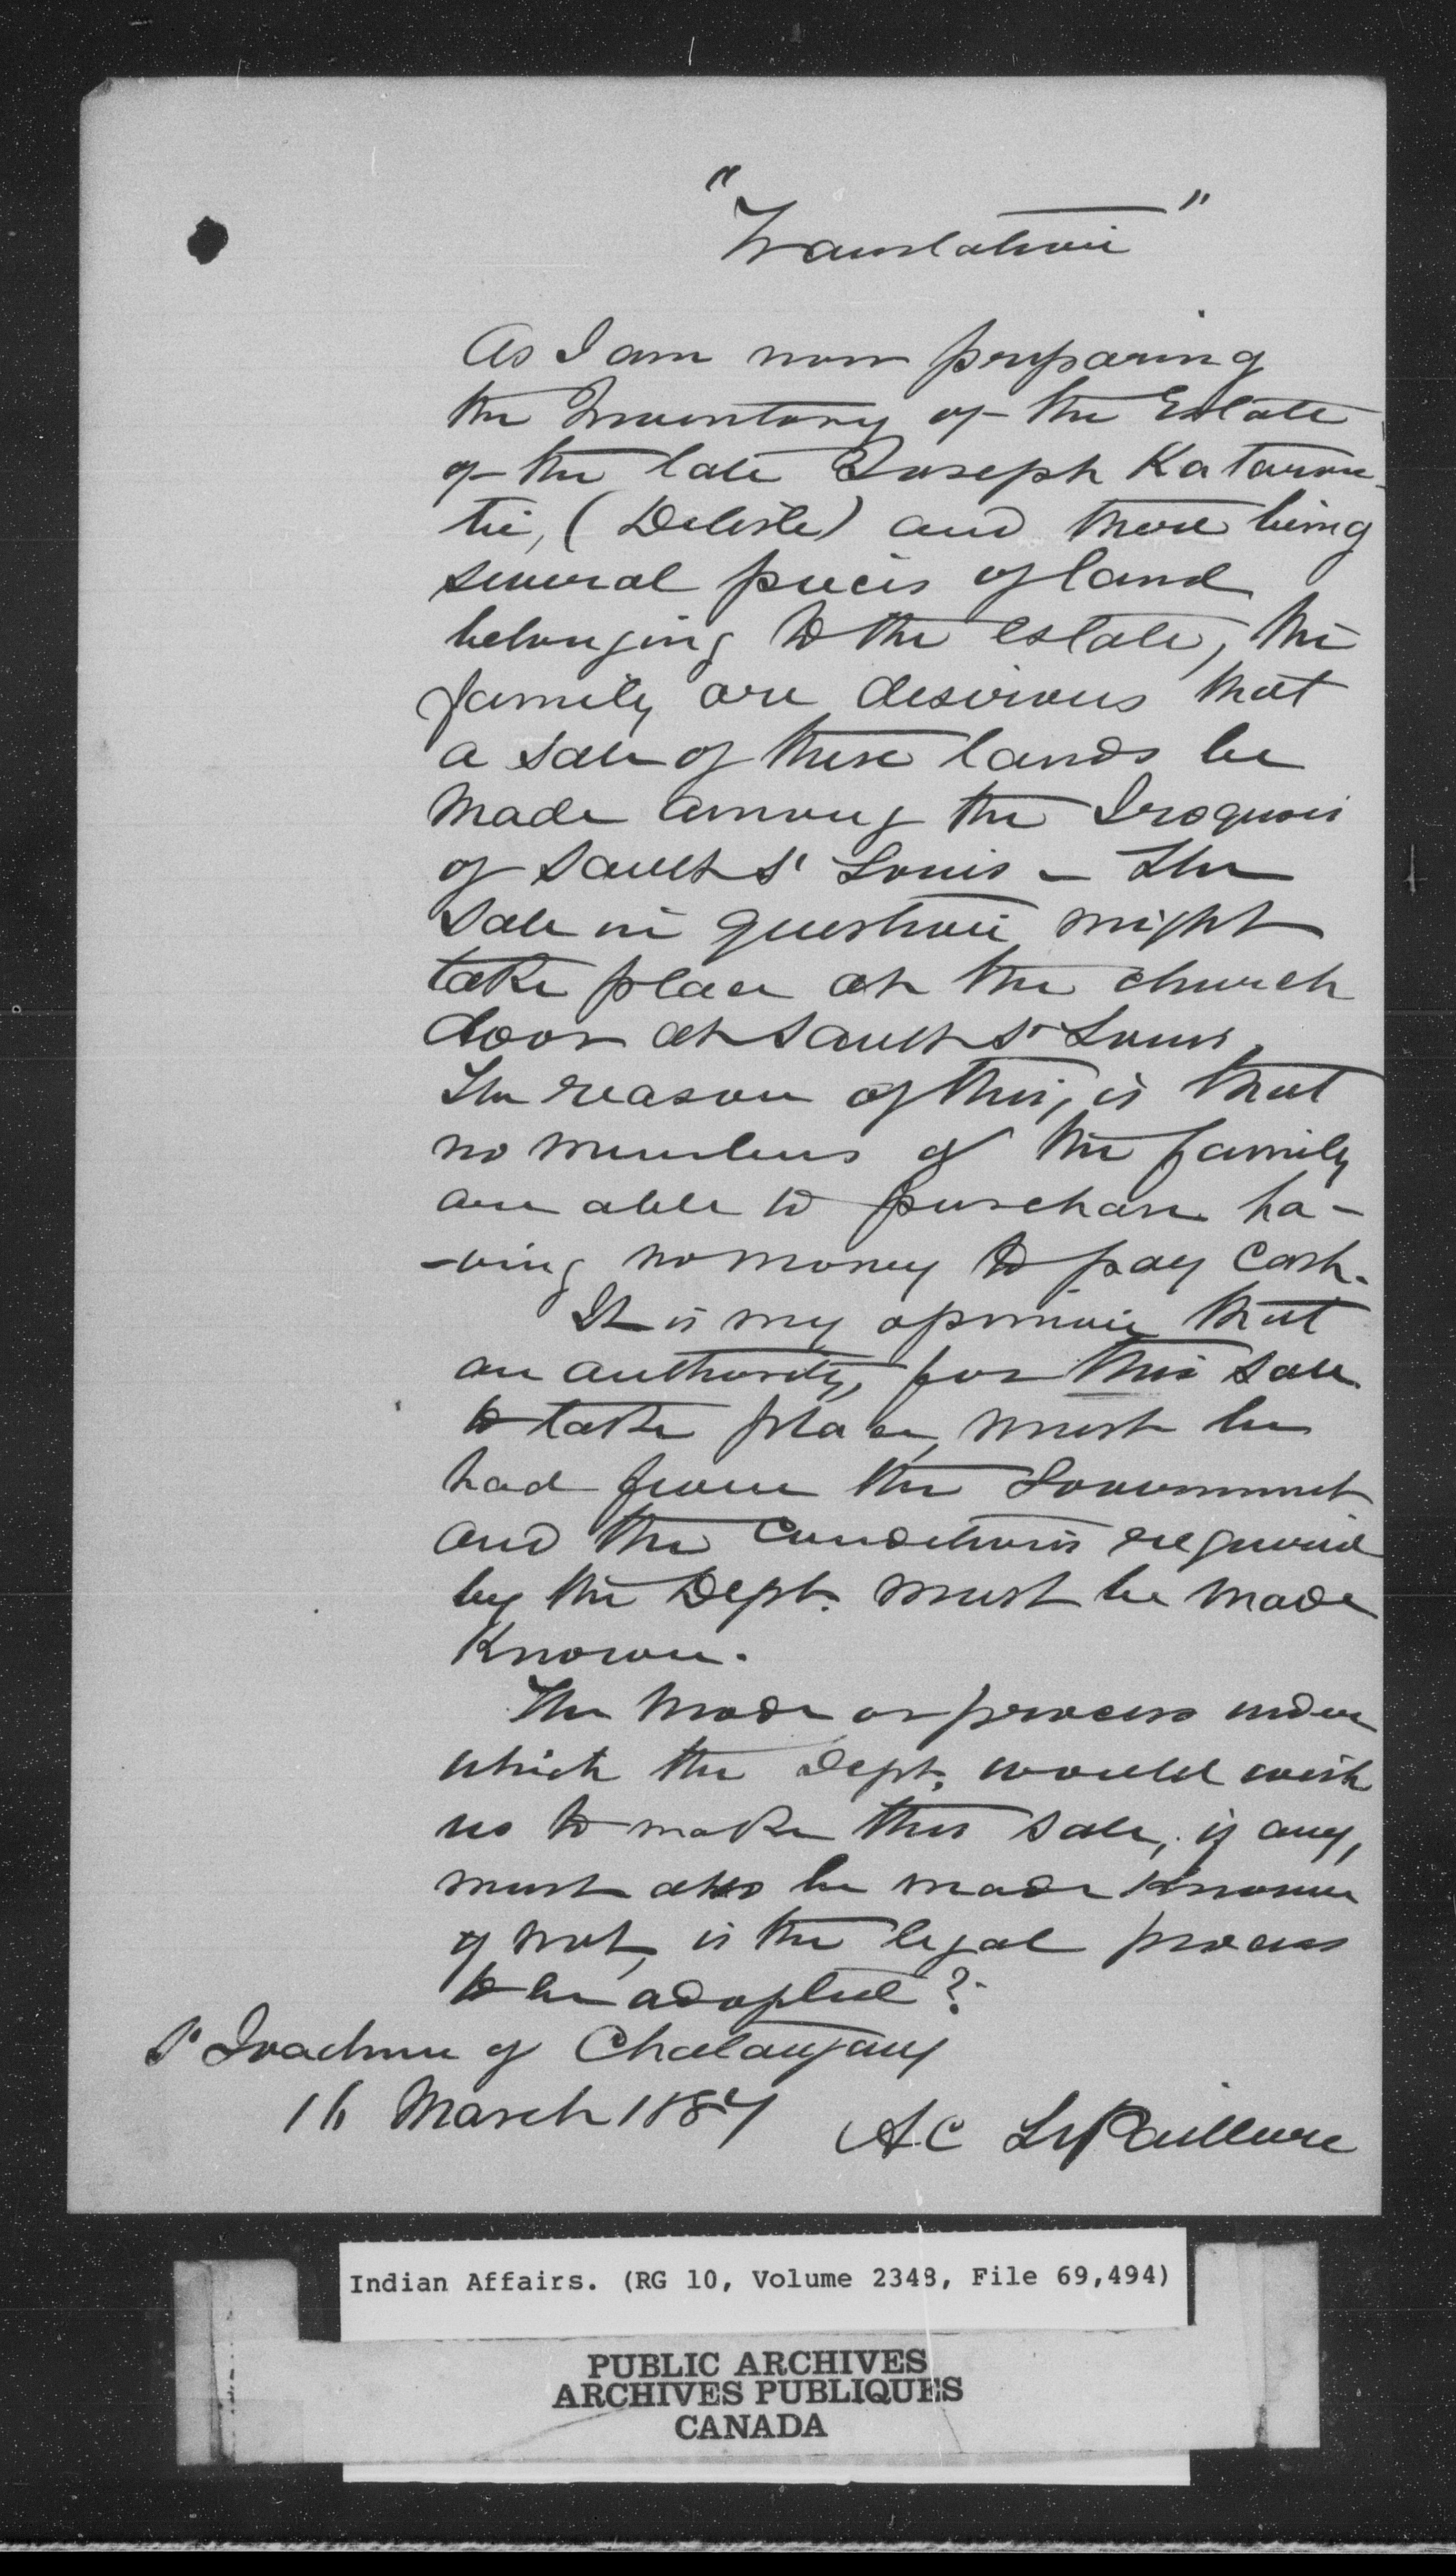 "Translation"
As I am now preparing
the Inventory of the Estate
of the late Joseph Kataron-
tie, (Delisle) and there being
several pieces of land
belonging to the estate, the
family are desirous that
a sale of these lands be
made among the Iroquois
of Sault St Louis - The
sale in question might
take place at the church
door at Sault St Louis,
The reason of this, is that
no members of the family
are able to purchase ha-
-ving no money to pay cash.
It is my opinion that
an authority, for this sale
to take place, must be
had from the Government
and the conditions required
by the Dept. must be made
Known.
The mode or process under
which the Dept. would wish
us to make this sale, if any,
must also be made known
if not, is the legal process
to be adopted?
St Joachim of Chateauguay
16 March 1887
A.C. LePailleur
Indian Affairs. (RG 10, Volume 2348, File 69,494)
PUBLIC ARCHIVES
ARCHIVES PUBLIQUES
CANADA